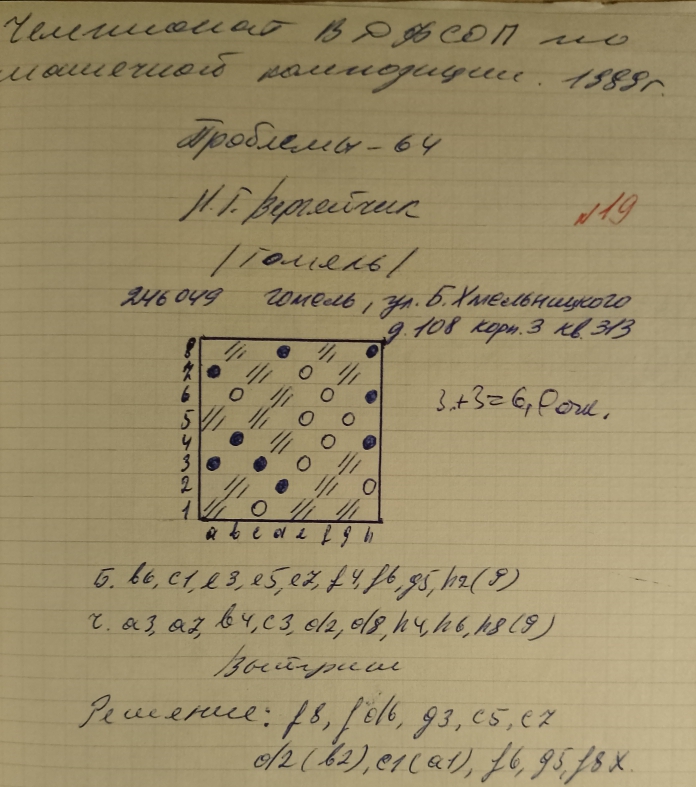 Чемпионат ВДФСОП по
шашечной композиции. 1989г.
Проблемы-64
Н.Г. Вергейчик
№19
/Гомель/
246049 гомель, ул. Б. Хмельницкого
д. 108 корп. 3 кв. 313
8
7
6
3+3=6, 
5
4
3
2
1
a b c d e f g h
Б. b6, c1, e3, e5, e7, f4, f6, g5, h2 (9)
Ч. a3, a7, b4, c3, d2, d8, h4, h6, h8 (9)
Выигрыш
Решение: f8, fd6, g3, c5, c7
d2 (b2), c1 (a1), f6, g5, f8 X.